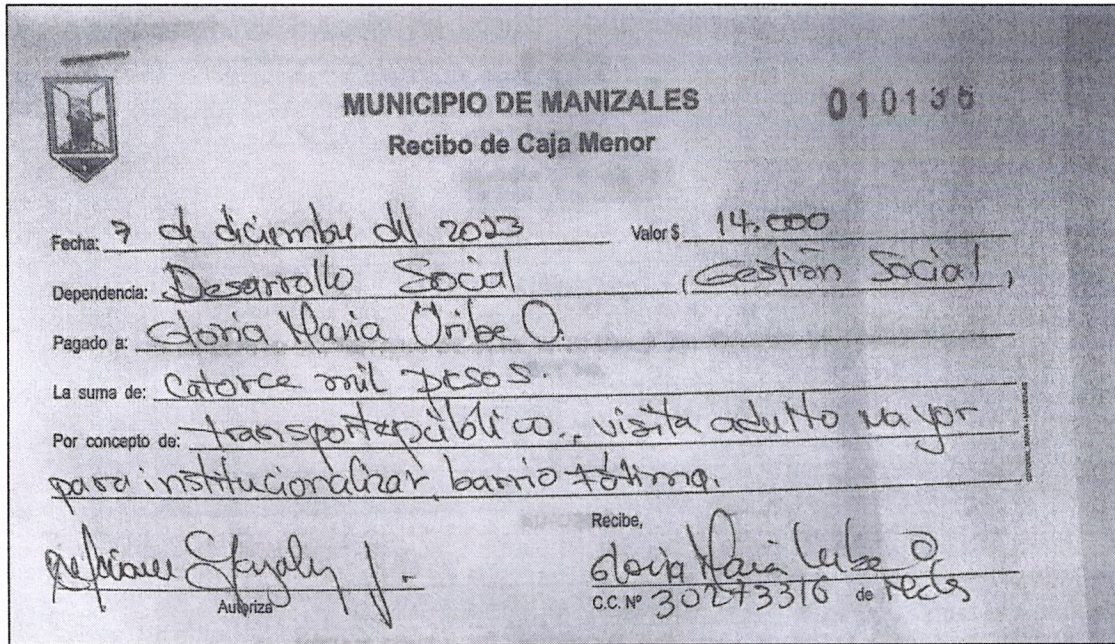 MUNICIPIO DE MANIZALES
Recibo de Caja Menor
Fecha: 7 de diciembre del 2023 Valor $ 14.000
Dependencia: Desarrollo Social (Gestión Social)
Pagado a: Gloria Maria Uribe O.
La suma de: Catorce mil pesos.
Por concepto de: transporte público, visita adulto mayor
para institucionalizar, barrio Fátima.
Recibe,
Gloria Maria Uribe O
Autoriza
C.C. Nº 30273316 de